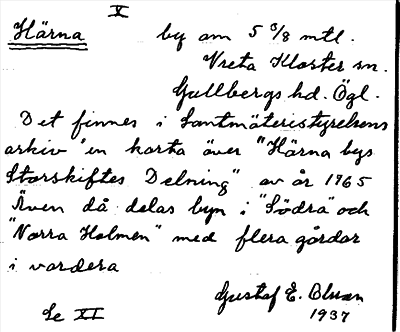 X
Härna by om 5 3/8 mtl.
Vreta Kloster sn.
Gullbergs hd. Ögl.
Det finnes i Lantmäteristyrelsens
arkiv en karta över "Härna bys
Storskiftes Delning" av år 1765
Även då delas byn i "Södra" och
"Norra Holmen" med flera gårdar
i vardera
Gustaf E.
Se XI 1937